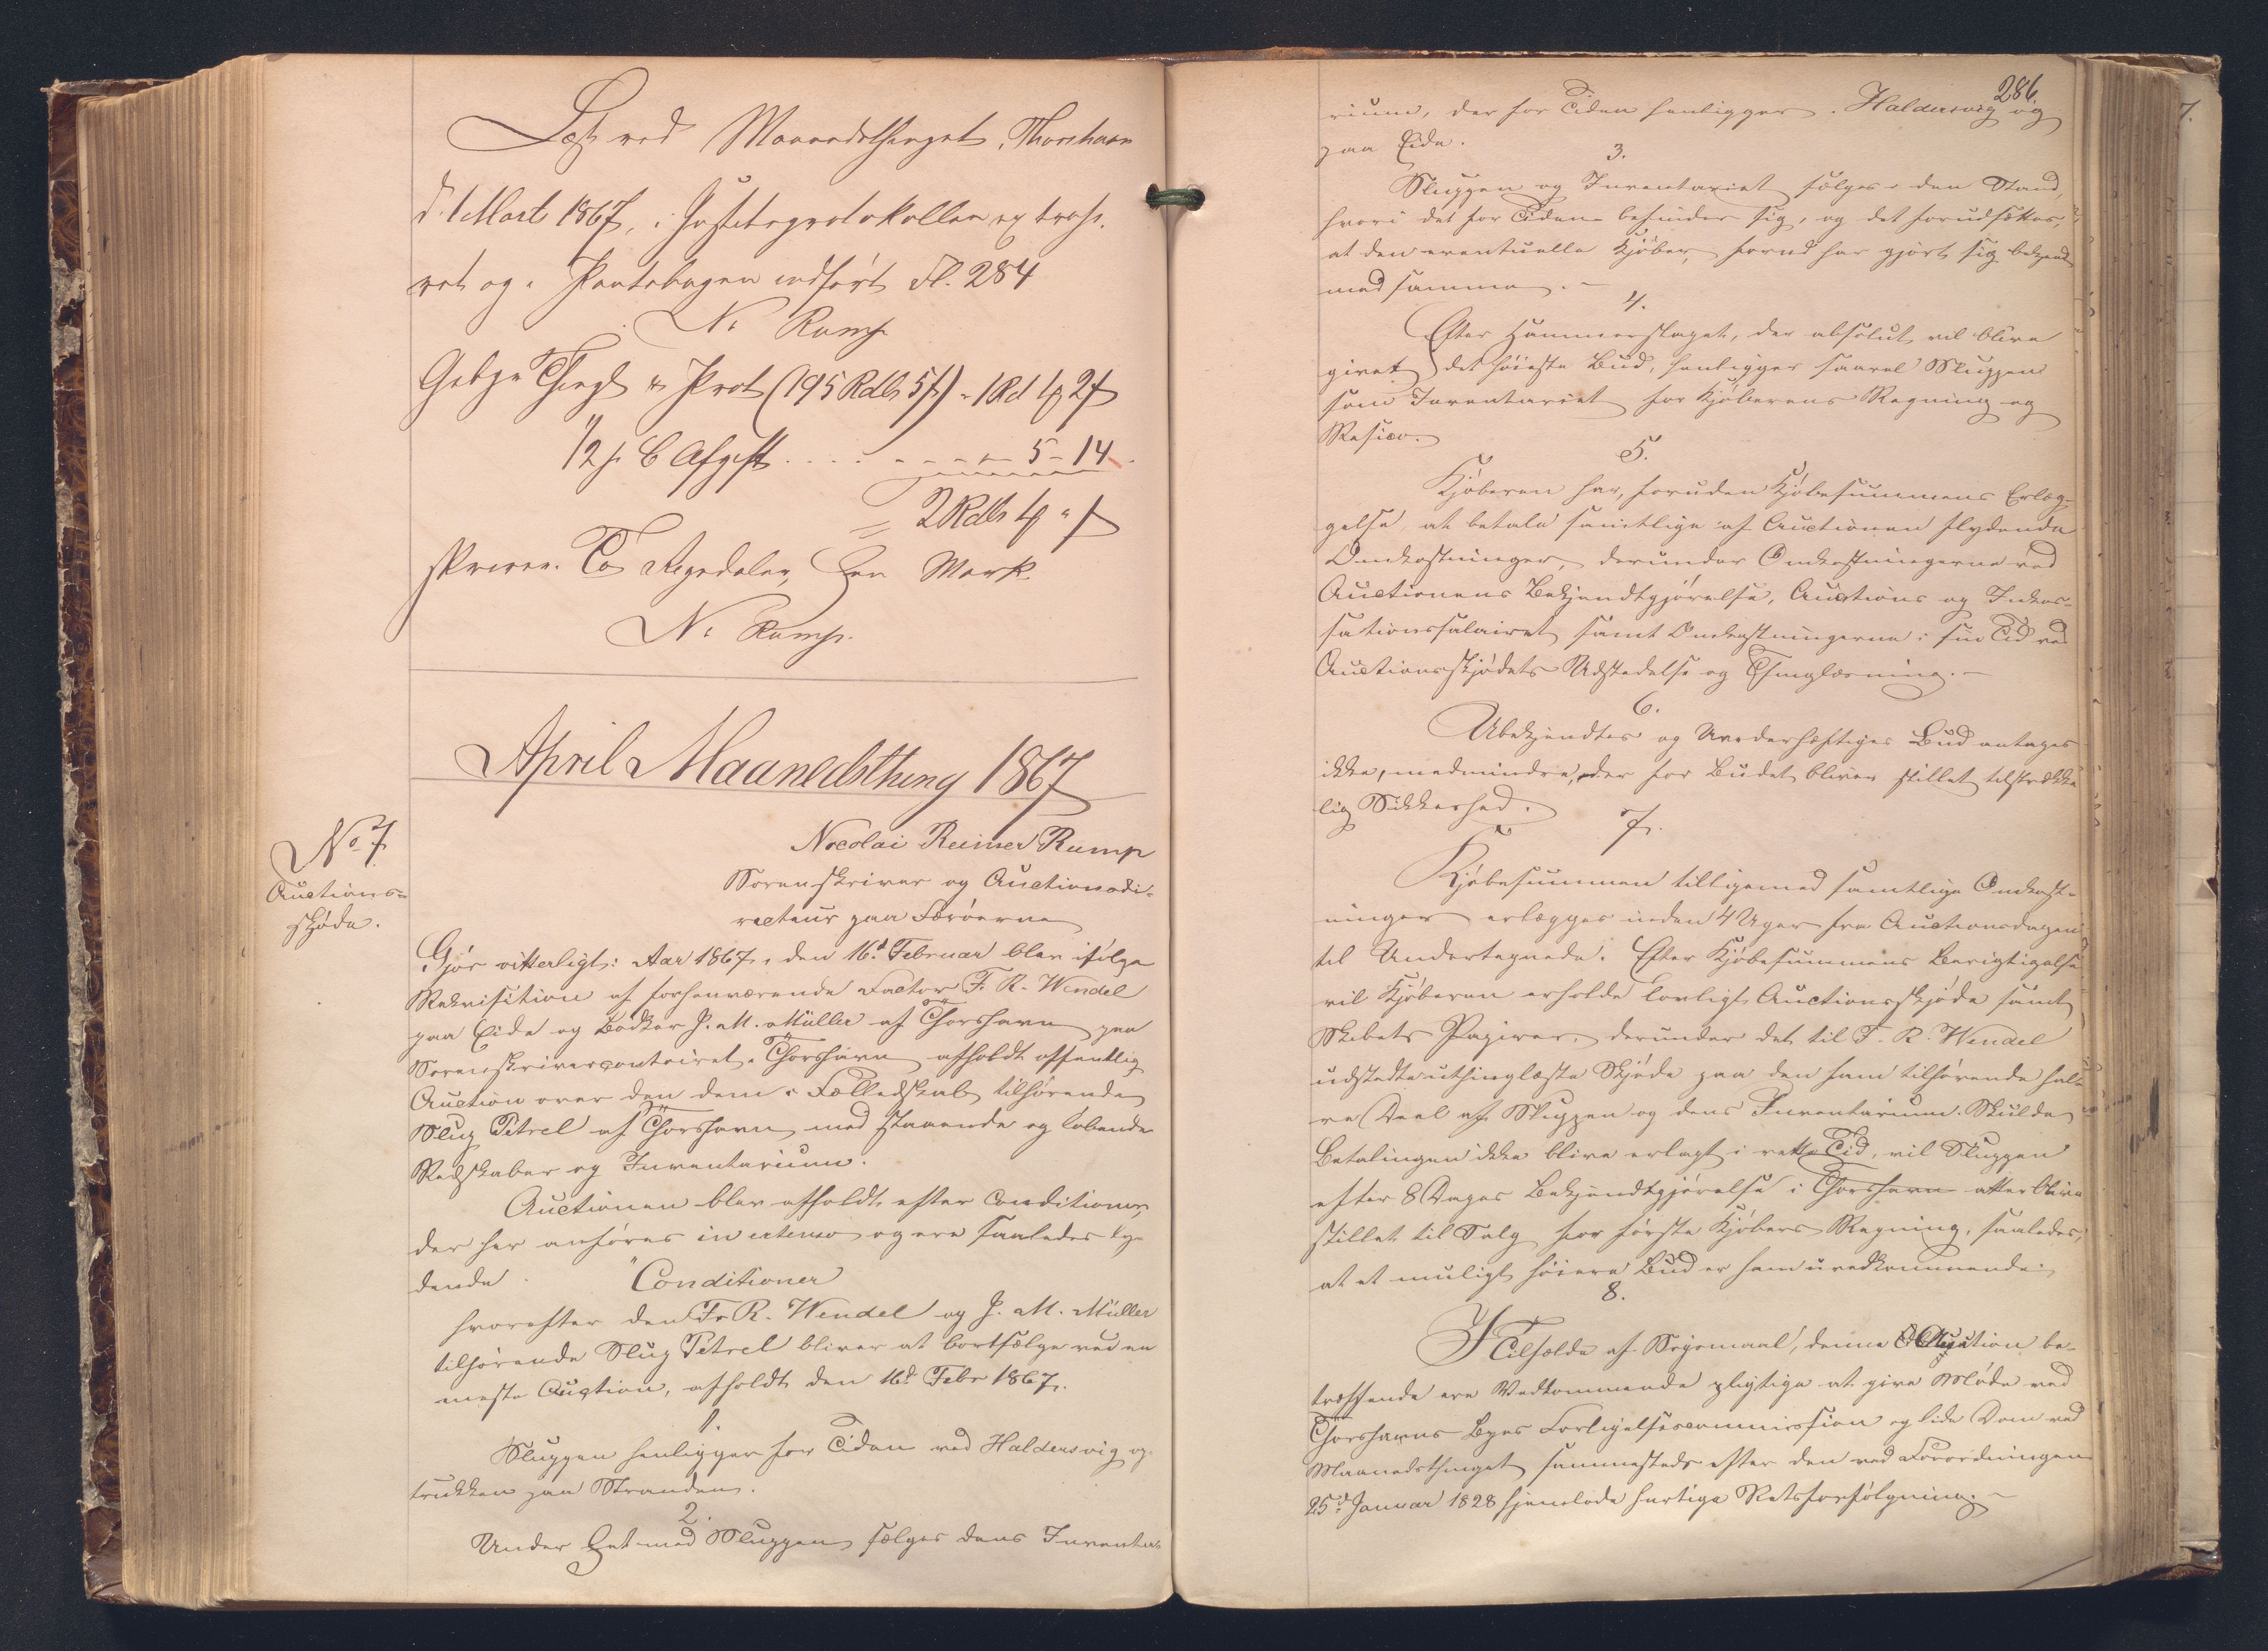 Læst ved Maanedsthinget i Thorshavn
d. 1 Marts 1867, i Justitsprotokollen extrahe-
ret og i Pantebogen indført Fol. 284
N. Rump
Gebyr Thingl. & Prot (195 Rdlr 5 f) - 1 Rd 4 2 f
1/2 p. C Afgift . . . . - - - - - 5 - 14
2 Rdlr 1 " f
skriver To Rigsdaler, Een Mark.
N. Rump.
April Maanedsthing 1867
No 7
Auctions-
skjøde.
Nicolai Reimer Rump
Sorenskriver og Auctionsdi-
recteur paa Færøerne
Gjør vitterligt: Aar 1867, den 16d Februar blev ifølge
Rekvisition af forhenværende Factor F. R. Wendel
paa Eide og Bødker J. M. Müller af Thorshavn paa
Sorenskrivercontoiret i Thorshavn afholdt offentlig
Auction over den dem i Fælledskab tilhørende
Slup Petrel af Thorshavn med staaende og løbende
Redskaber og Inventarium.
Auctionen blev afholdt efter Conditioner,
der her anføres in extenso og ere saaledes ly-
dende "Conditioner
hvorefter den F. R. Wendel og J. M. Müller
tilhørende Slup Petrel bliver at bortsælge ved en
næste Auction, afholdt den 16d Febr 1867.
1.
Sluppen henligger for Tiden ved Haldersvig op-
trukken paa Stranden.
2.
Under Eet med Sluppen sælges dens Inventa-
286
rium, der for Tiden henligger i Haldersvig og
paa Eide.
3.
Sluppen og Inventariet sælges i den Stand,
hvori det for Tiden befinder sig, og det forudsættes,
at den eventuelle Kjøber, forud har gjort sig bekjendt
med samme. -
4.
Efter Hammerslaget, der absolut vil blive
givet det høieste Bud, henligger saavel Sluppen
som Inventariet for Kjøberens Regning og
Risico.
5.
Kjøberen har, foruden Kjøbesummens Erlæg-
gelse, at betale samtlige af Auctionen flydende
Omkostninger, derunder Omkostningerne ved
Auctionens Bekjendtgjørelse, Auctions og Inkas-
sationssalairet samt Omkostningerne i sin Tid ved
Auctionsskjødets Udstedelse og Thinglæsning. -
6.
Ubekjendtes og Uvederhæftiges Bud antages
ikke, medmindre, der for Budet bliver stillet tilstrække-
lig Sikkerhed.
7.
Kjøbesummen tilligemed samtlige Omkost-
ninger erlægges inden 4 Uger fra Auctionsdagen
til Undertegnede. Efter Kjøbesummens Berigtigelse
vil Kjøberen erholde lovligt Auctionsskjøde samt
Skibets Papirer, derunder det til F. R. Wendel
udstedte uthinglæste Skjøde paa den ham tilhørende hal-
ve Deel af Sluppen og dens Inventarium. Skulde
Betalingen ikke blive erlagt i rette Tid, vil Sluppen
efter 8 Dages Bekjendtgjørelse i Thorshavn atter blive
stillet til Salg for første Kjøbers Regning, saaledes,
at et muligt høiere Bud er ham uvedkommende.
8.
I Tilfælde af Søgsmaal, denne Auction be-
træffende ere Vedkommende pligtige at give Møde ved
Thorshavns Byes Forligelsescommission og lide Dom ved
Maanedsthinget sammesteds efter den ved Forordningen
25d Januar 1828 hjemlede hurtige Retsforfølgning. -